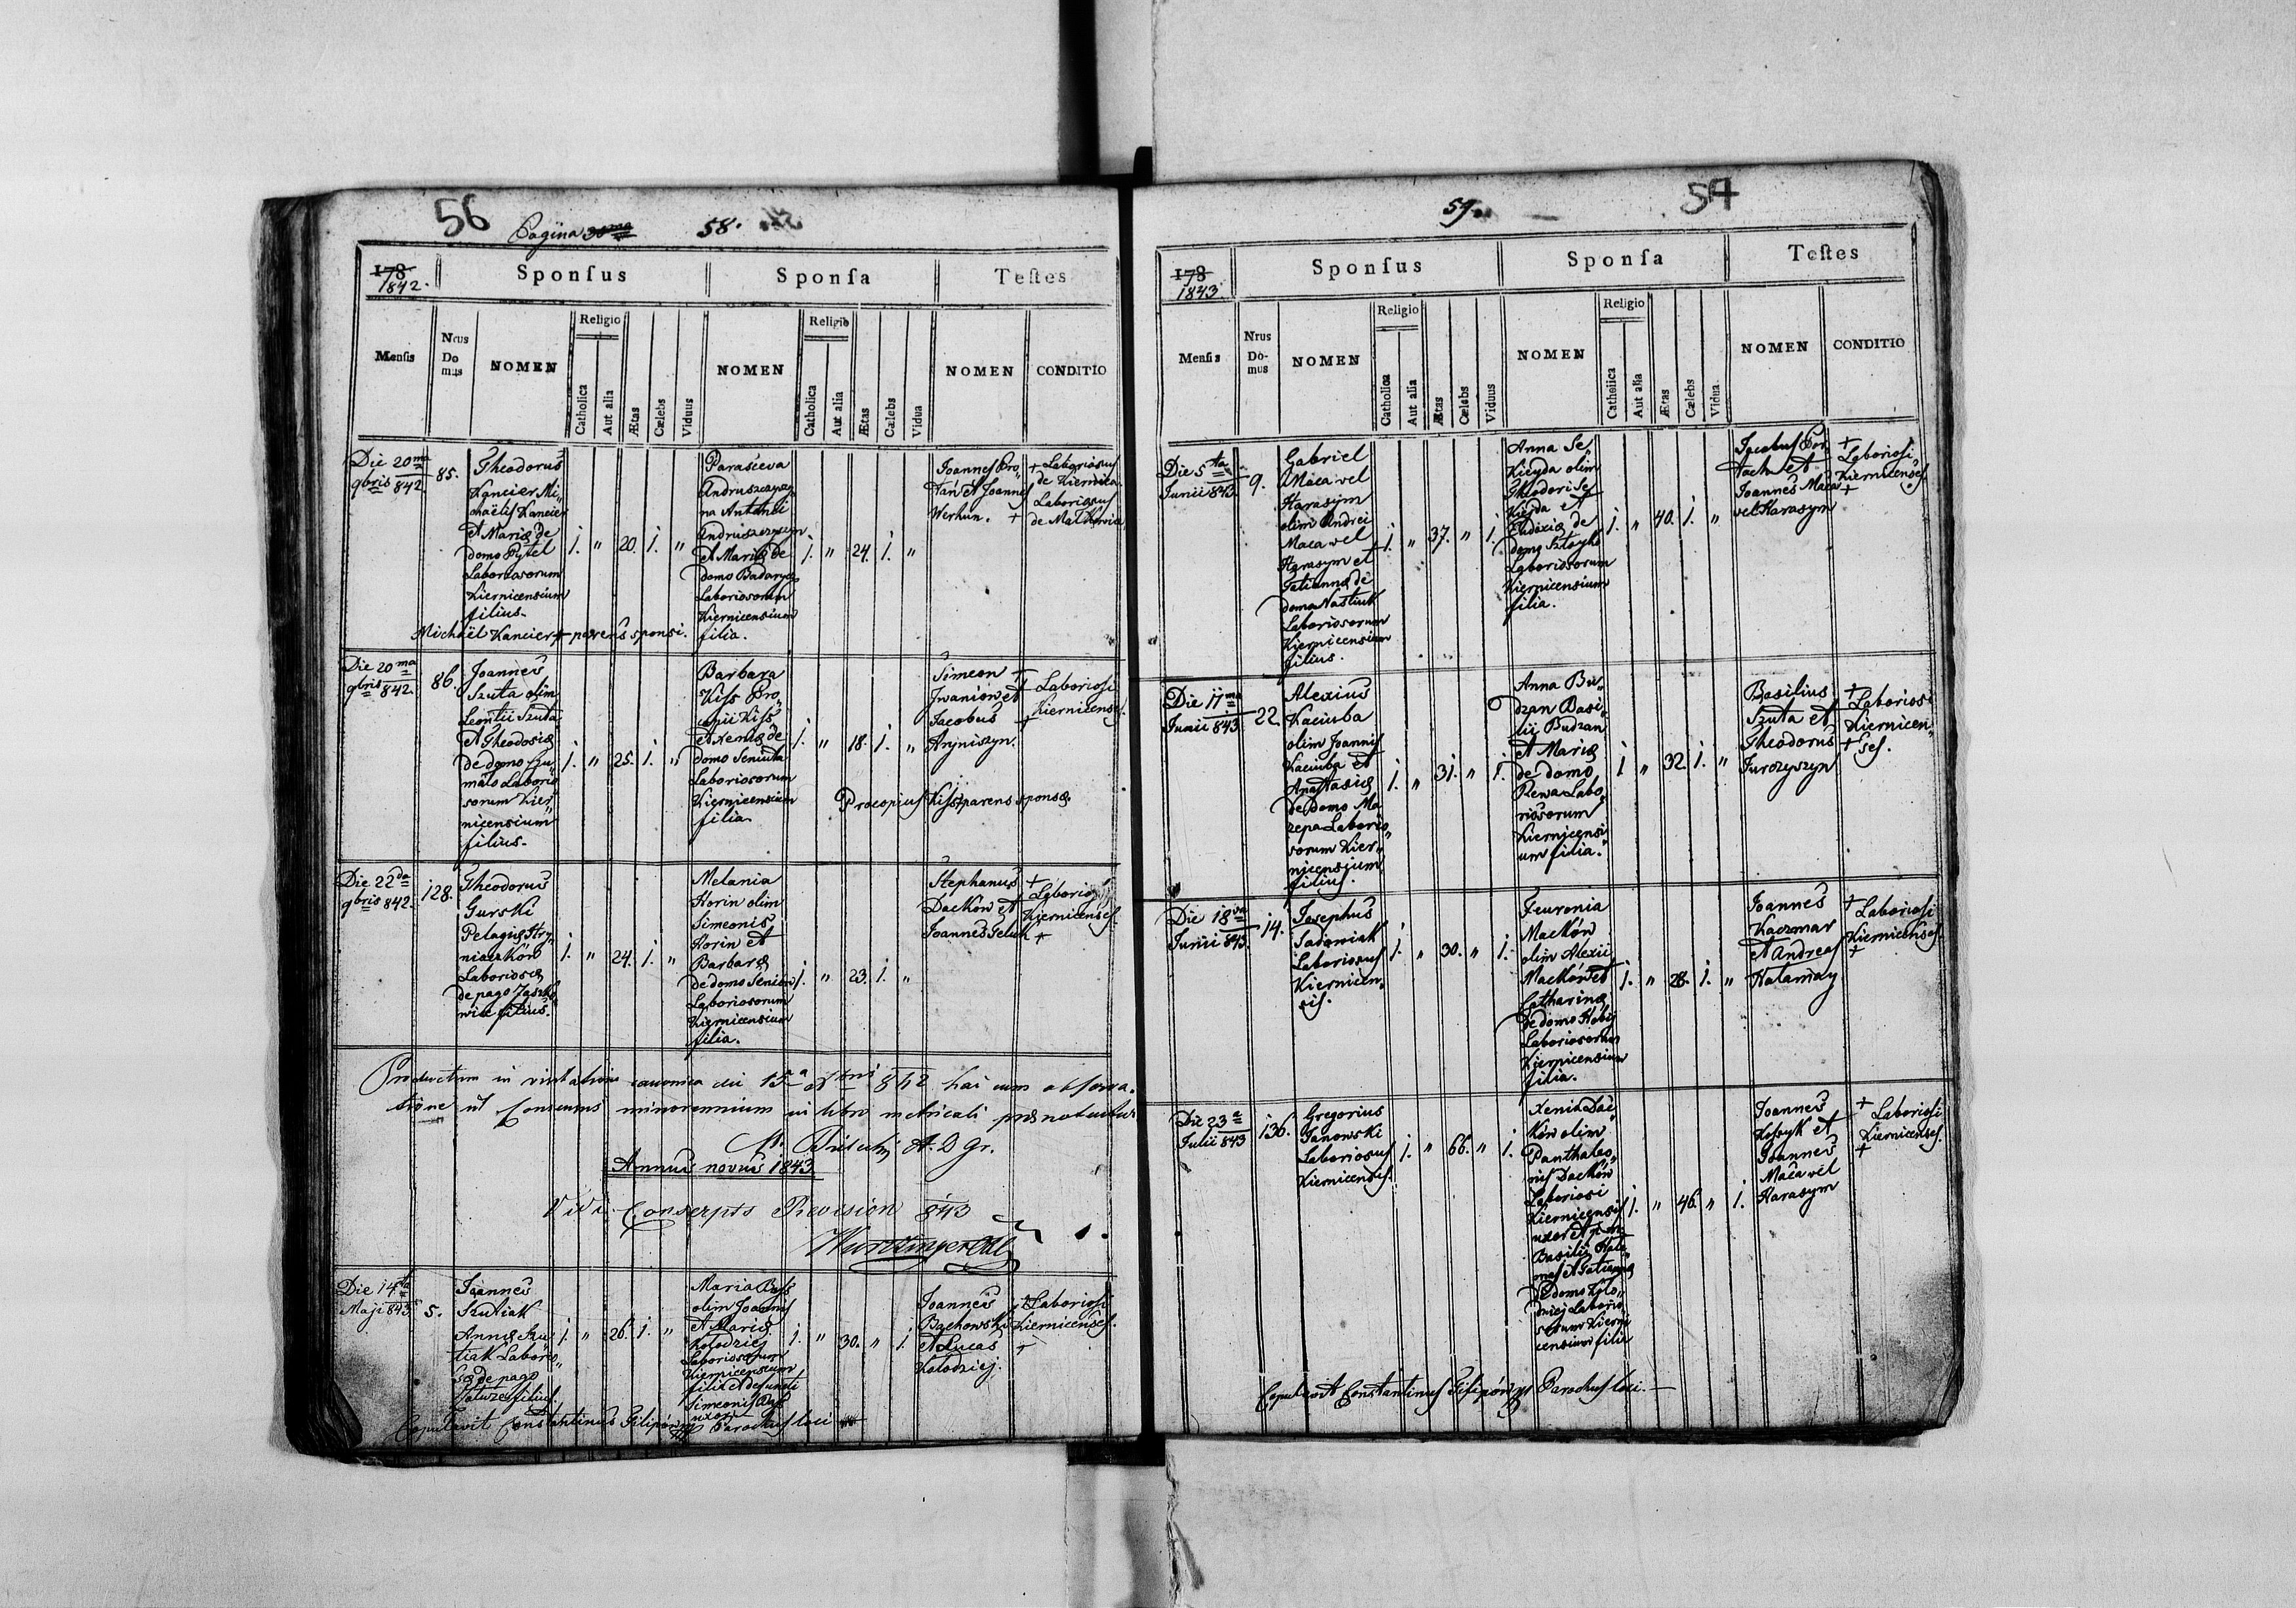 56
Pagina 30ma 58.
178
1842.
Sponſus
Sponſa
Teſtes
Menſis
Nrus
Do
mus
NOMEN
Religio
Catholica
Aut alia
Ætas
Cælebs
Viduus
NOMEN
Religio
Catholica
Aut alia
Ætas
Cælebs
Vidua
NOMEN
CONDITIO
Die 20ma
9bris 842.
85.
Theodorus
Kancier Mi„
chaëlis Kancier
et Mariæ de
domo Pytel
Laboriosorum
Kiernicensium
filius.
1. „ 20. 1. „
Parasceva
Andruszczyszy„
na Antonii
Andruszczyszyn
et Mariæ de
domo
Laboriosorum
Kiernicensium
filia.
1. „ 24. 1. „
Joannes Pro„
tań et Joannes
Werhun. +
+ Laboriosus
de Kiernica
Laboriosus
de Małkowice
Michaël Kancier + parens sponsi.
Die 20ma
9bris 842.
86.
Joannes
Szuta olim
Leontii Szuta
et Theodosiæ
de domo Hu„
mało Laborio
sorum Kier„
nicensium
filius.
1. „ 25. 1. „
Barbara
Kiss Pro„
copii Kiss
et Xeniæ de
domo Seniuta
Laboriosorum
Kiernicensium
filia.
1. „ 18. 1. „
Simeon +
Iwaniów et
Jacobus +
Hryniszyn.
Laboriosi
Kiernicenses.
Procopius Kiss + parens sponsæ.
Die 22da
9bris 842.
128.
Theodorus
Gurski
Pelagiæ Hry„
niaczków
Laboriosæ
de pago Zaszko„
wice filius.
1. „ 24. 1. „
Melania
Horin olim
Simeonis
Horin et
Barbaræ
de domo Seniów
Laboriosorum
Kiernicensium
filia.
1. „ 23. 1. „
Stephanus +
Daćków et
Joannes Teluk +
Laboriosi
Kiernicenses.
Productum in visitatione canonica die 15a 8bris 842 hac cum observa„
tione ut Consensus minorennium in libro metricali prænotentur
A. D. Gr.
Annus novus 1843
Vidi Conscrpts Revision 843
Die 14ta
Maji 843
5.
Joannes
Szutiak
Annæ Szu
tiak Laborio„
sæ de pago
filius.
1. „ 26. 1. „
Maria Buss
olim Joannis
et Mariæ
Kołodziej
Laboriosorum
Kiernicensium
filia et defuncti
Simeonis Buss
uxor.
1. „ 30. „ 1.
Joannes
Bzehowski
et Lucas
Kołodziej.
+ Laboriosi
Kiernicenses.
+
Copulavit Constantinus Filipóń Parochus loci
59. 57
178
1843.
Sponſus
Sponſa
Teſtes
Menſis
Nrus
Do-
mus
NOMEN
Religio
Catholica
Aut alia
Ætas
Cælebs
Viduus
NOMEN
Religio
Catholica
Aut alia
Ætas
Cælebs
Vidua
NOMEN
CONDITIO
Die 5ta
Junii 843.
9.
Gabriel
Maca vel
Harasym
olim Andrei
Maca vel
Harasym et
Tatiannæ de
domo Nastiuk
Laboriosorum
Kiernicensium
filius.
1. „ 37. „ 1.
Anna Se„
Kieyda olim
Theodori Se„
Kieyda et
Eudoxiæ de
domo
Laboriosorum
Kiernicensium
filia.
1. „ 40. 1. „
Jacobus Por
tach et
Joannes Maca
vel Harasym
+
Laboriosi
Kiernicenses.
+
Die 11ma
Junii 843
22.
Alexius
Kaciuba
olim Joannis
Kaciuba et
Anastasiæ
de domo Ma
zepa Laborio„
sorum Kier„
nicensium
filius.
1. „ 31. „ 1.
Anna Bu„
dzan Basi„
lii Budzan
et Mariæ
de domo
Rewa Labo„
riosorum
Kiernicensi
um filia.
1 „ 32. 1. „
Basilius
Szuta et
Theodorus
Jurczyszyn
+
Laboriosi
Kiernicen„
+ ses.
Die 18va
Junii 843.
14.
Josephus
Sadowiak
Laboriosus
Kiernicen„
sis.
1. „ 30. „ 1.
Feuronia
Maćków
olim Alexii
Maćków et
Catharinæ
de domo
Laboriosorum
Kiernicensium
filia.
1. „ 28. 1. „
Joannes
Kaczmar
et Andreas
Hałamay
+ Laboriosi
Kiernicenses.
+
Die 23a
Julii 843
136.
Gregorius
Janowski
Laboriosus
Kiernicensis.
1. „ 66. „ 1.
Xenia Dać„
ków olim
Panthaleo„
nis Daćków
Laboriosi
Kiernicensis
uxor et olim
Basilii
et Tatiannæ
de domo Koło„
dziej Laborio„
sorum Kierni
censium filia
1. „ 46. „ 1.
Joannes
Kosyk et
Joannes
Maca vel
Harasym
+ Laboriosi
Kiernicenses.
+
Copulavit Constantinus Filipóń Parochus loci.